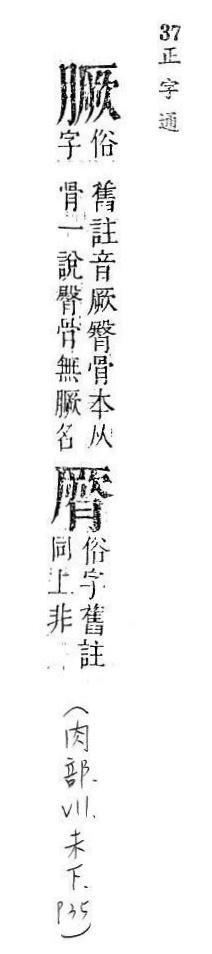 37正字通
俗
字
舊註音厥臀骨本从
骨一說臀骨無名
俗字舊註
同上非
(肉部. VII. 未下. P35)